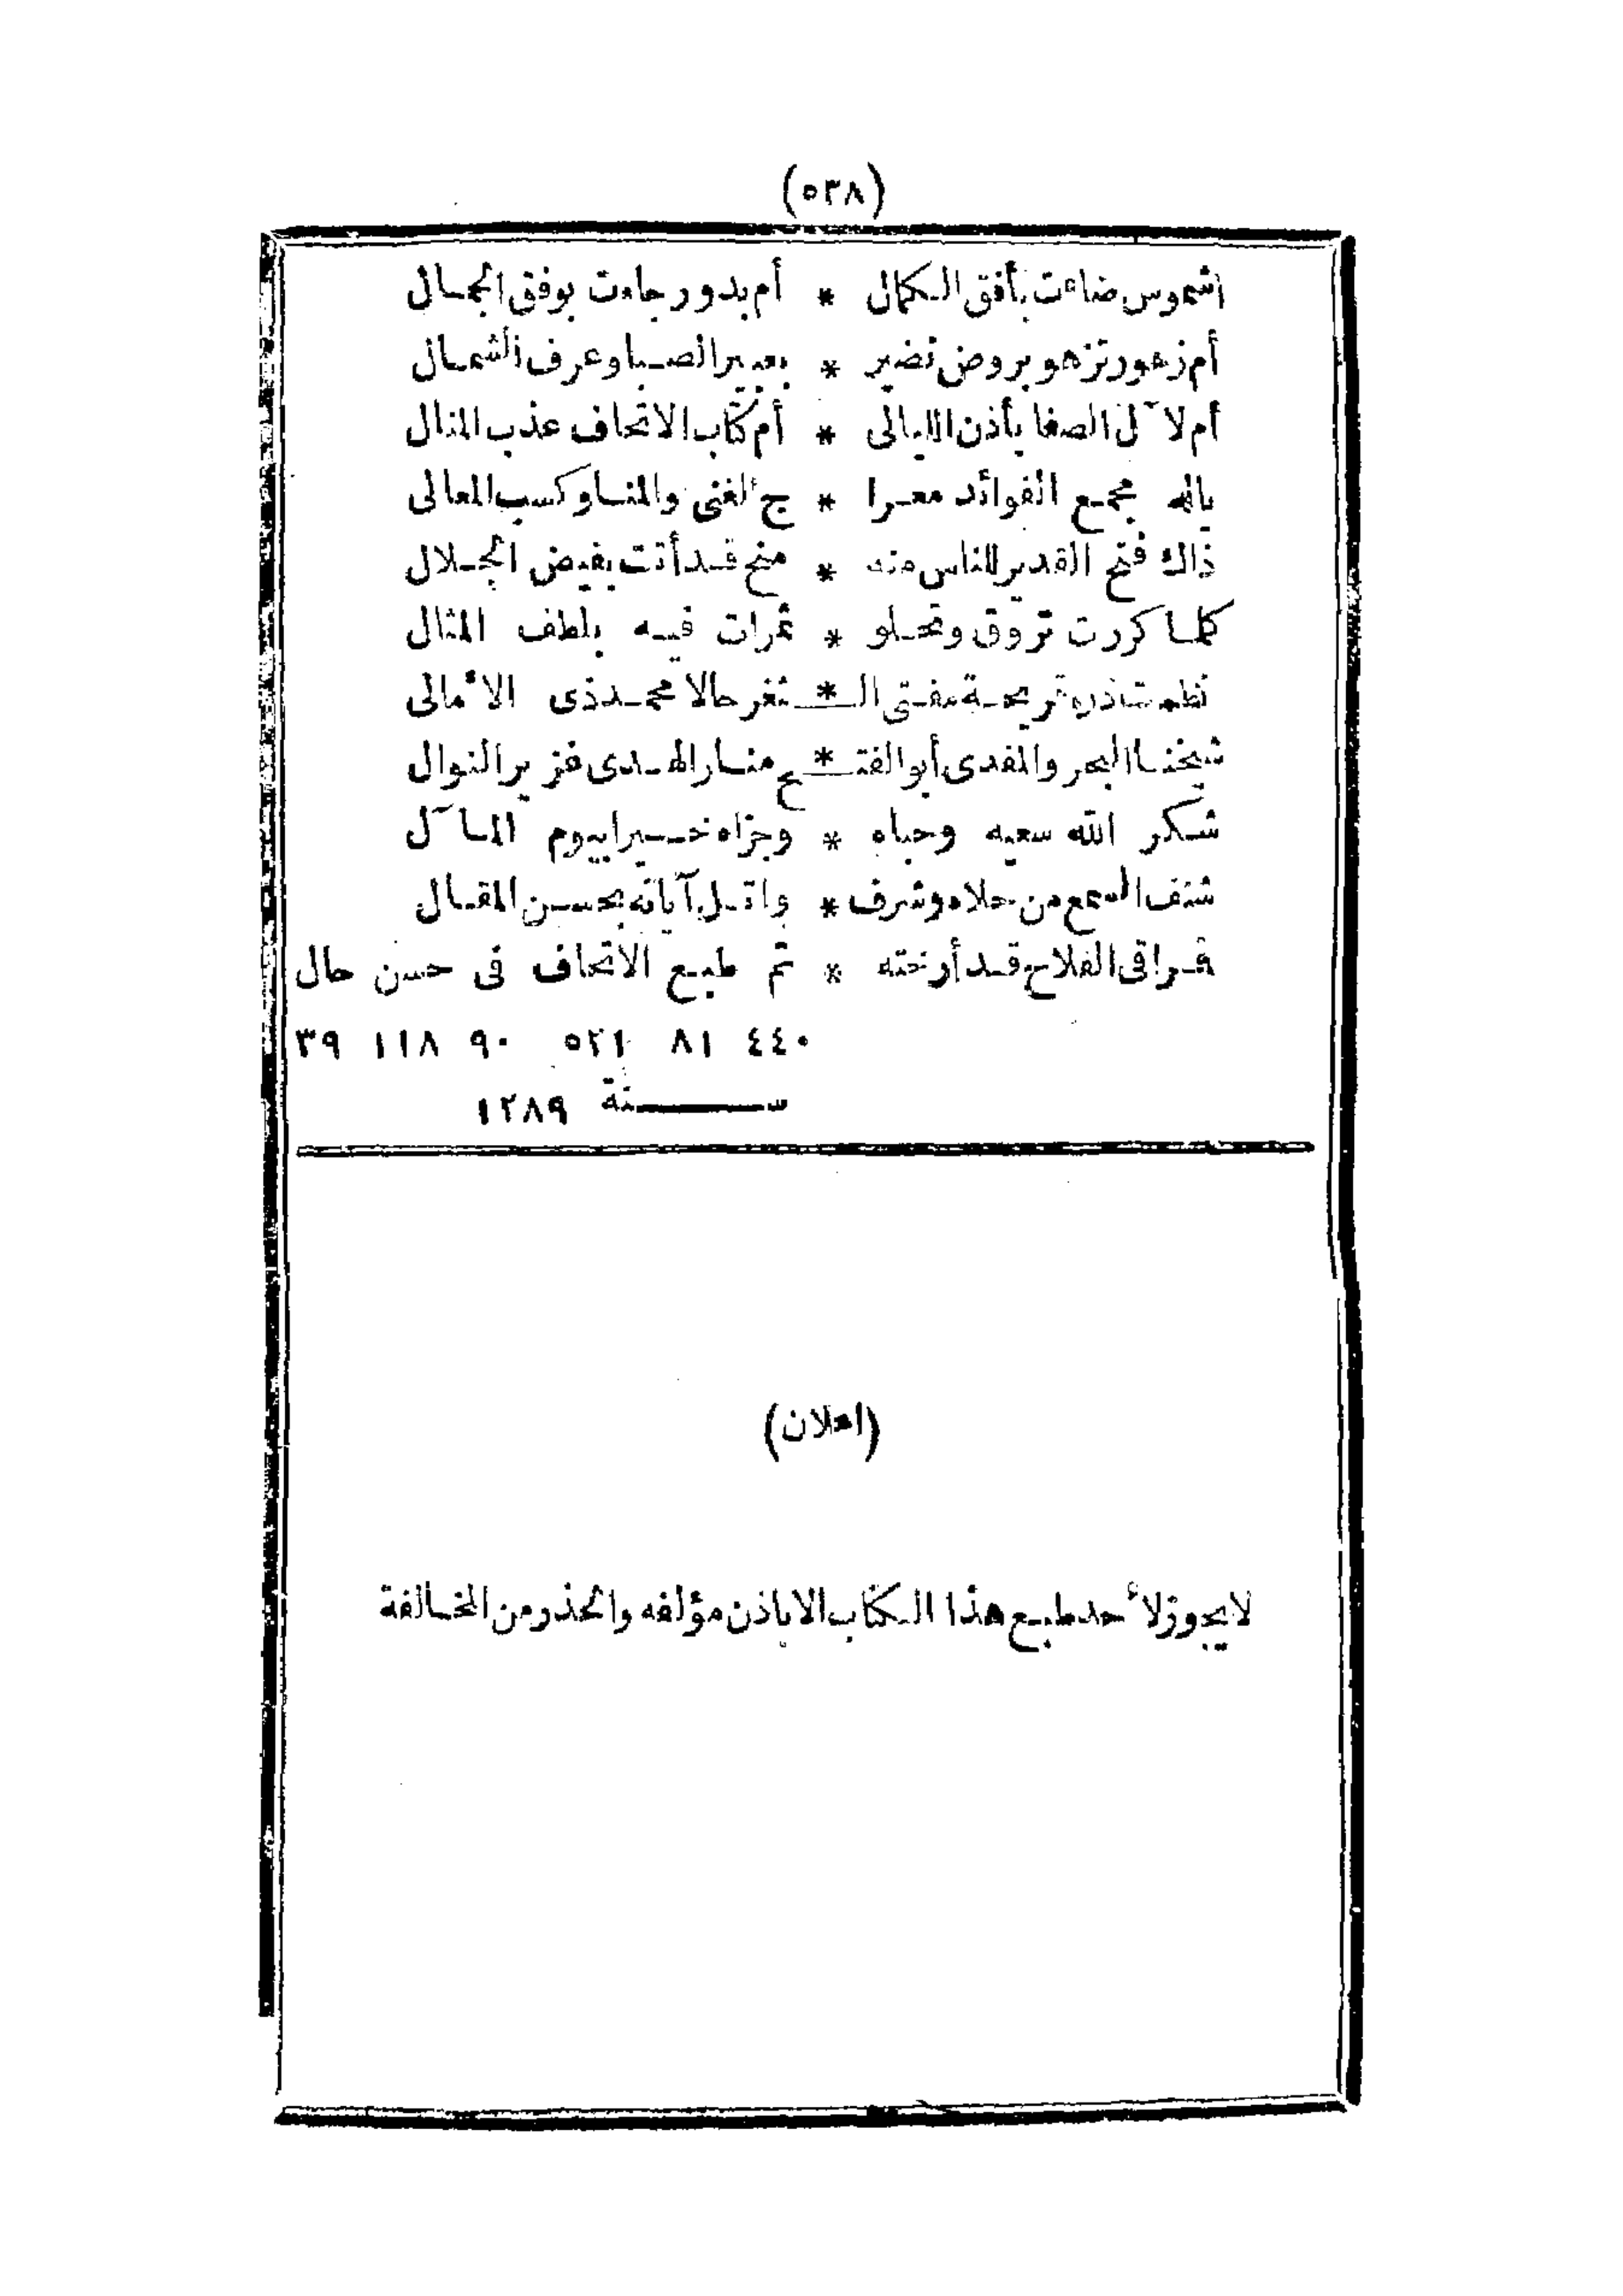 (٥٣٨)
أشموس ضاءت بأفق الكمال * أم بدور جاءت بوفق الجمال
أم زهور تزهو بروض نضير * بعبير الصبا وعرف الشمال
أم لآل الصفا بأذن الليالى * أم كتاب الاتحاف عذب المنال
ياله مجمع الفوائد معرا * ج الغنى والمنا وكسب المعالى
ذاك فتح القدير للناس منه * منح قد أتت بفيض الجلال
كلما كررت تروق وتحلو * ثمرات فيه بلطف المثال
نظمت دره قريحة مفتى الـ * ثغر حالا محمد ذى الأمالى
شيخنا البحر والمفدى أبو الفتـ * ح منار الهدى غزير النوال
شكر الله سعيه وحباه * وجزاه خيرا بيوم المآل
شنف السمع من حلاه وشرف * واتل آياته بحسن المقال
فراقى الفلاح قد أرخته * تم طبع الاتحاف فى حسن حال
٤٤٠ ٨١ ٥٢١ ٩٠ ١١٨ ٣٩
سنة ١٢٨٩
(اعلان)
لا يجوز لأحد طبع هذا الكتاب الا باذن مؤلفه والحذر من المخالفة